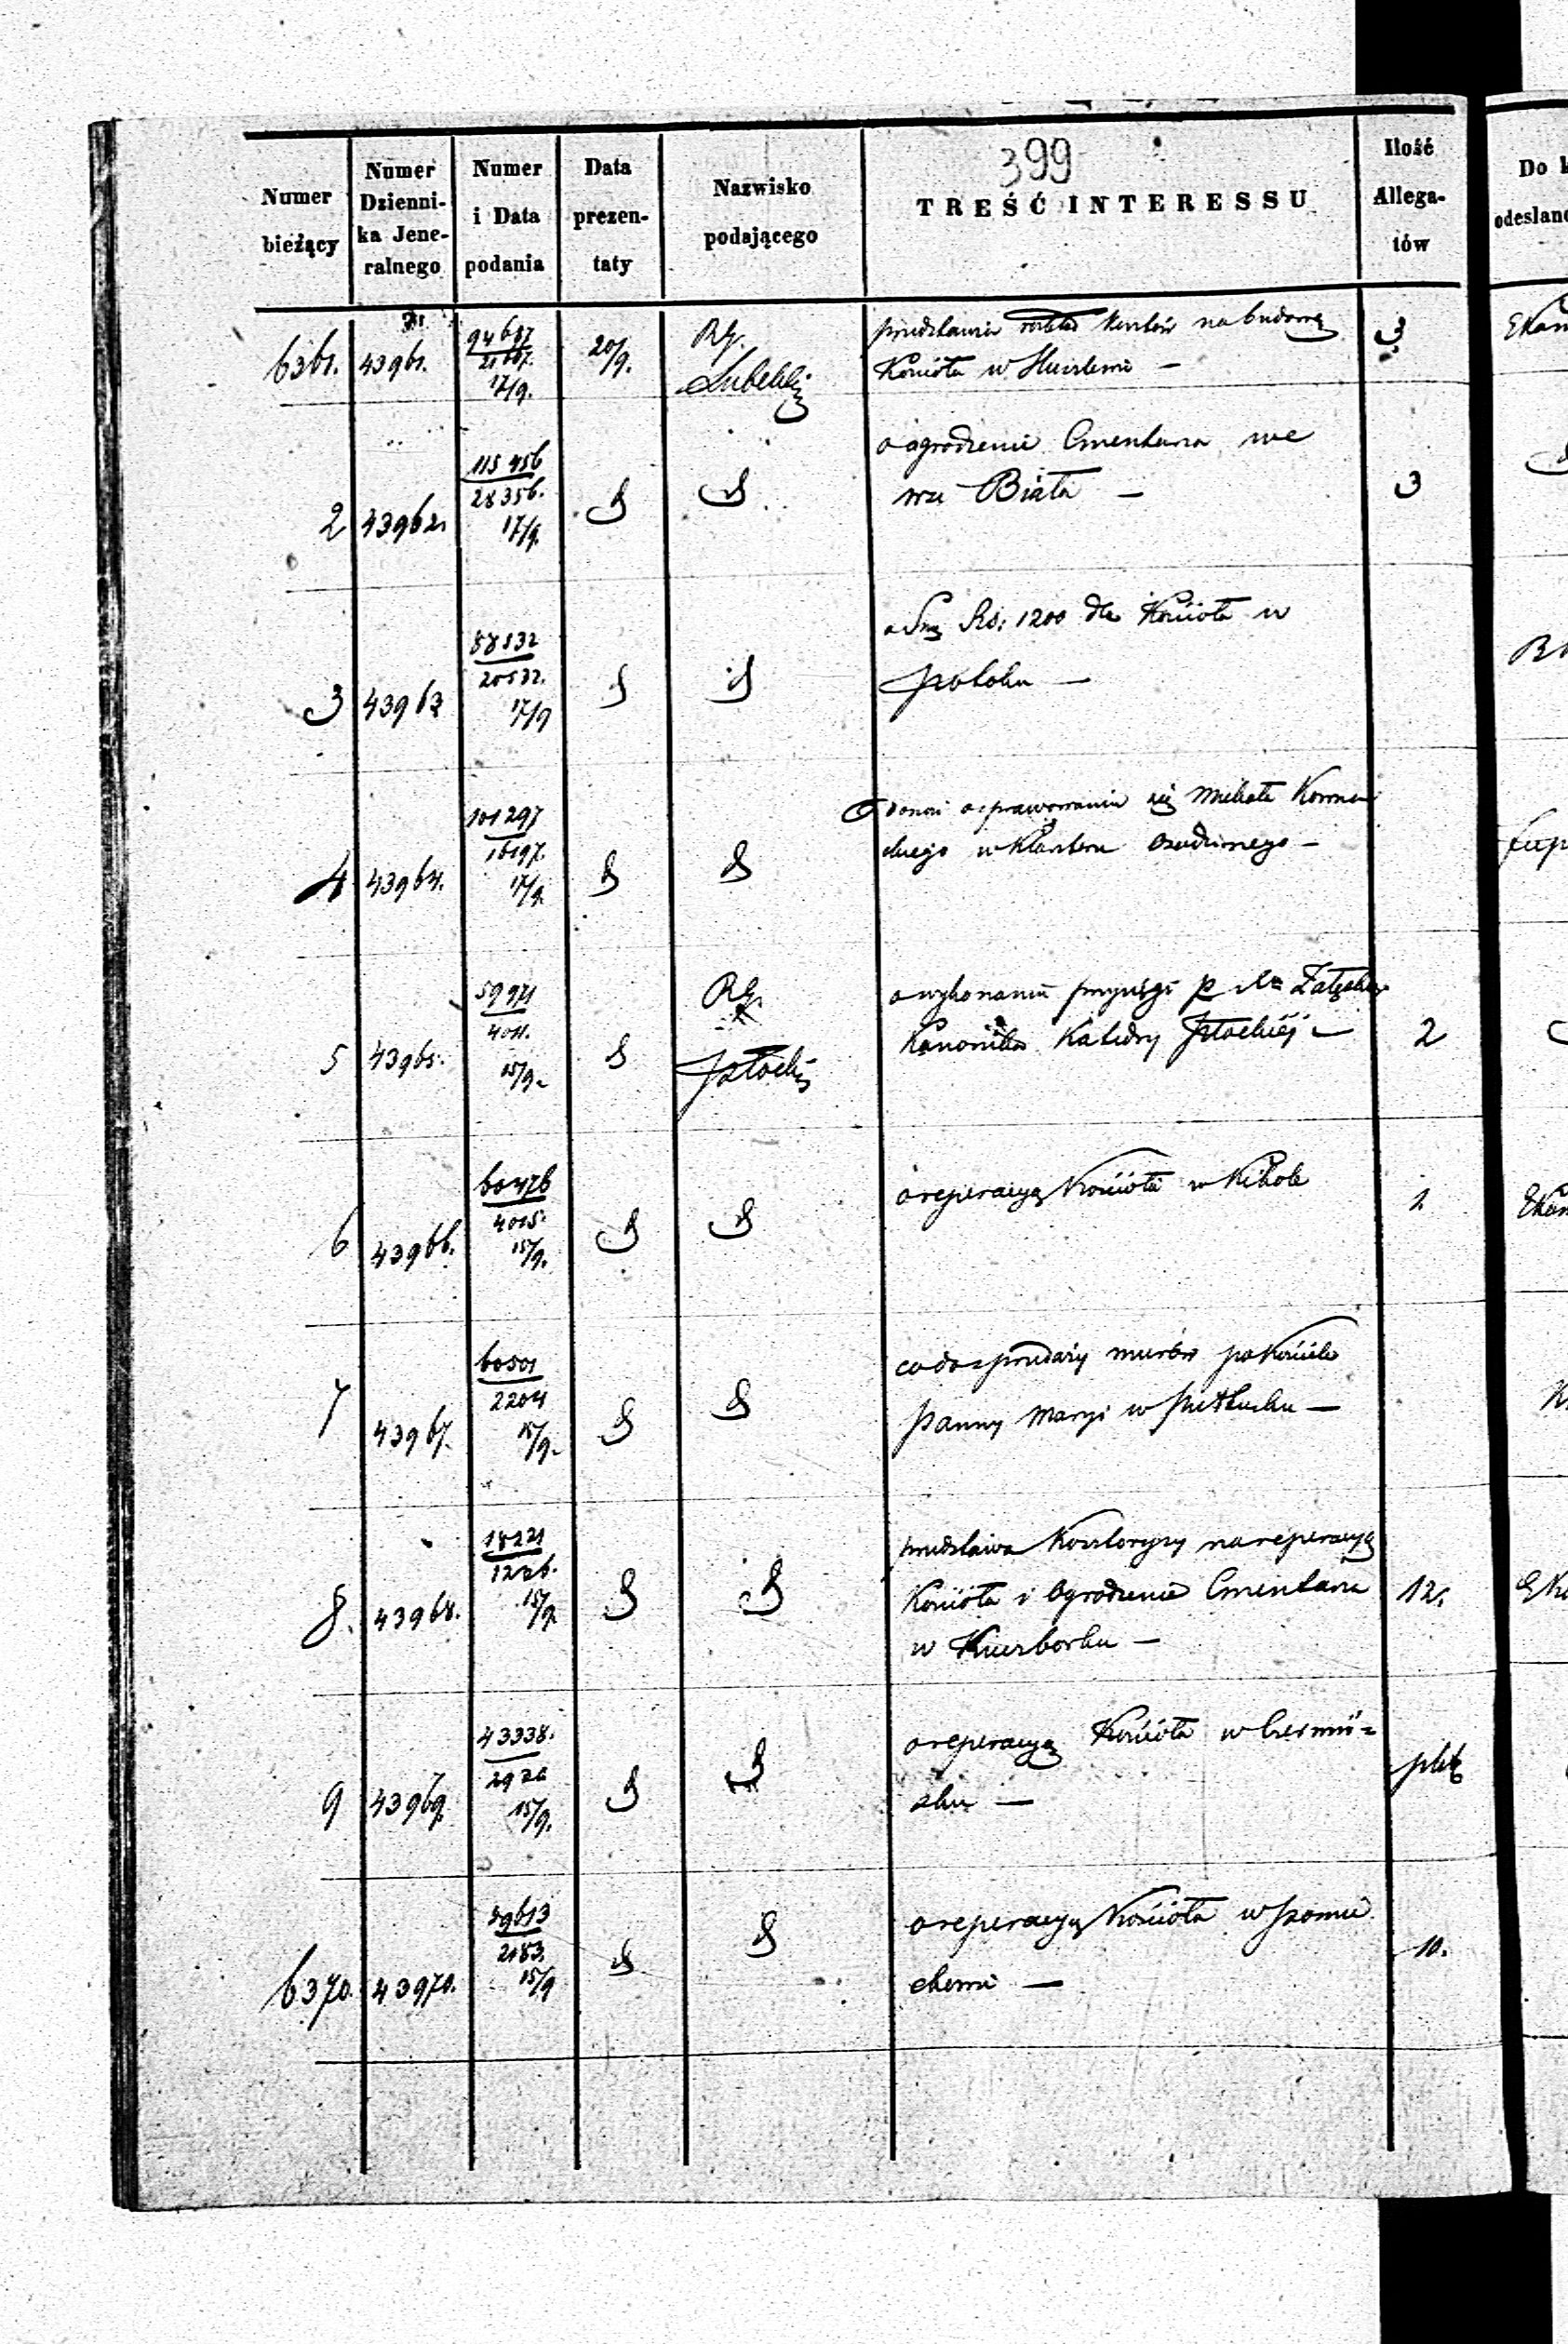 399
Numer bieżący
Numer Dzienni-ka Jene-ralnego
Numer i Data podania
Data prezen-taty
Nazwisko podającego
TREŚĆ INTERESSU
Ilość Allega-tów
Do
odesłano
6361. 43961. 94687 21687. 17/9. 20/9. RG. Lubelski
przedstawia rozkład kosztów na budowę
Kościoła w 3
2 43962. 115456 28356. 17/9.
o ogrodzenie Cmentarza we
wsi Biała — 3
3 43963 88532 20532. 17/9
o Sumę Rs: 1200 dla Kościoła w
Potoku —
4 43964. 101297 16197. 17/9.
donosi o sprawowaniu się Michała
w Klasztorze osadzonego —
5 43965. 59971 4011. 15/9. RG. Płocki
o wykonaniu przysięgi p Załęskiego
Kanonika Katedry Płockiéj — 2
6 43966. 60476 4015. 15/9.
o reperacyą Kościoła w Kikole 1.
7 43967. 60501 2204 15/9.
co do sprzedaży murów po Kościele
Panny Maryi w Pułtusku —
8. 43968. 18221 1226. 15/9.
przedstawia Kosztorysy na reperacyą
Kościoła i Ogrodzenie Cmentarza 12.
w Kuczborku —
9 43969. 43338. 2926 15/9.
o reperacyą Kościoła w Czermiń=
sku — plik
6370. 43970. 59613 2183. 15/9
o reperacyą Kościoła w Pomie
chowie — 10.